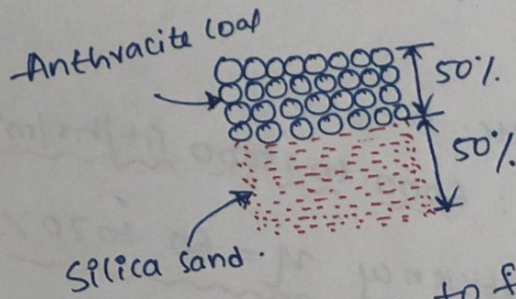 Anthracite Coal
50%.
50%.
Silica sand.
to f